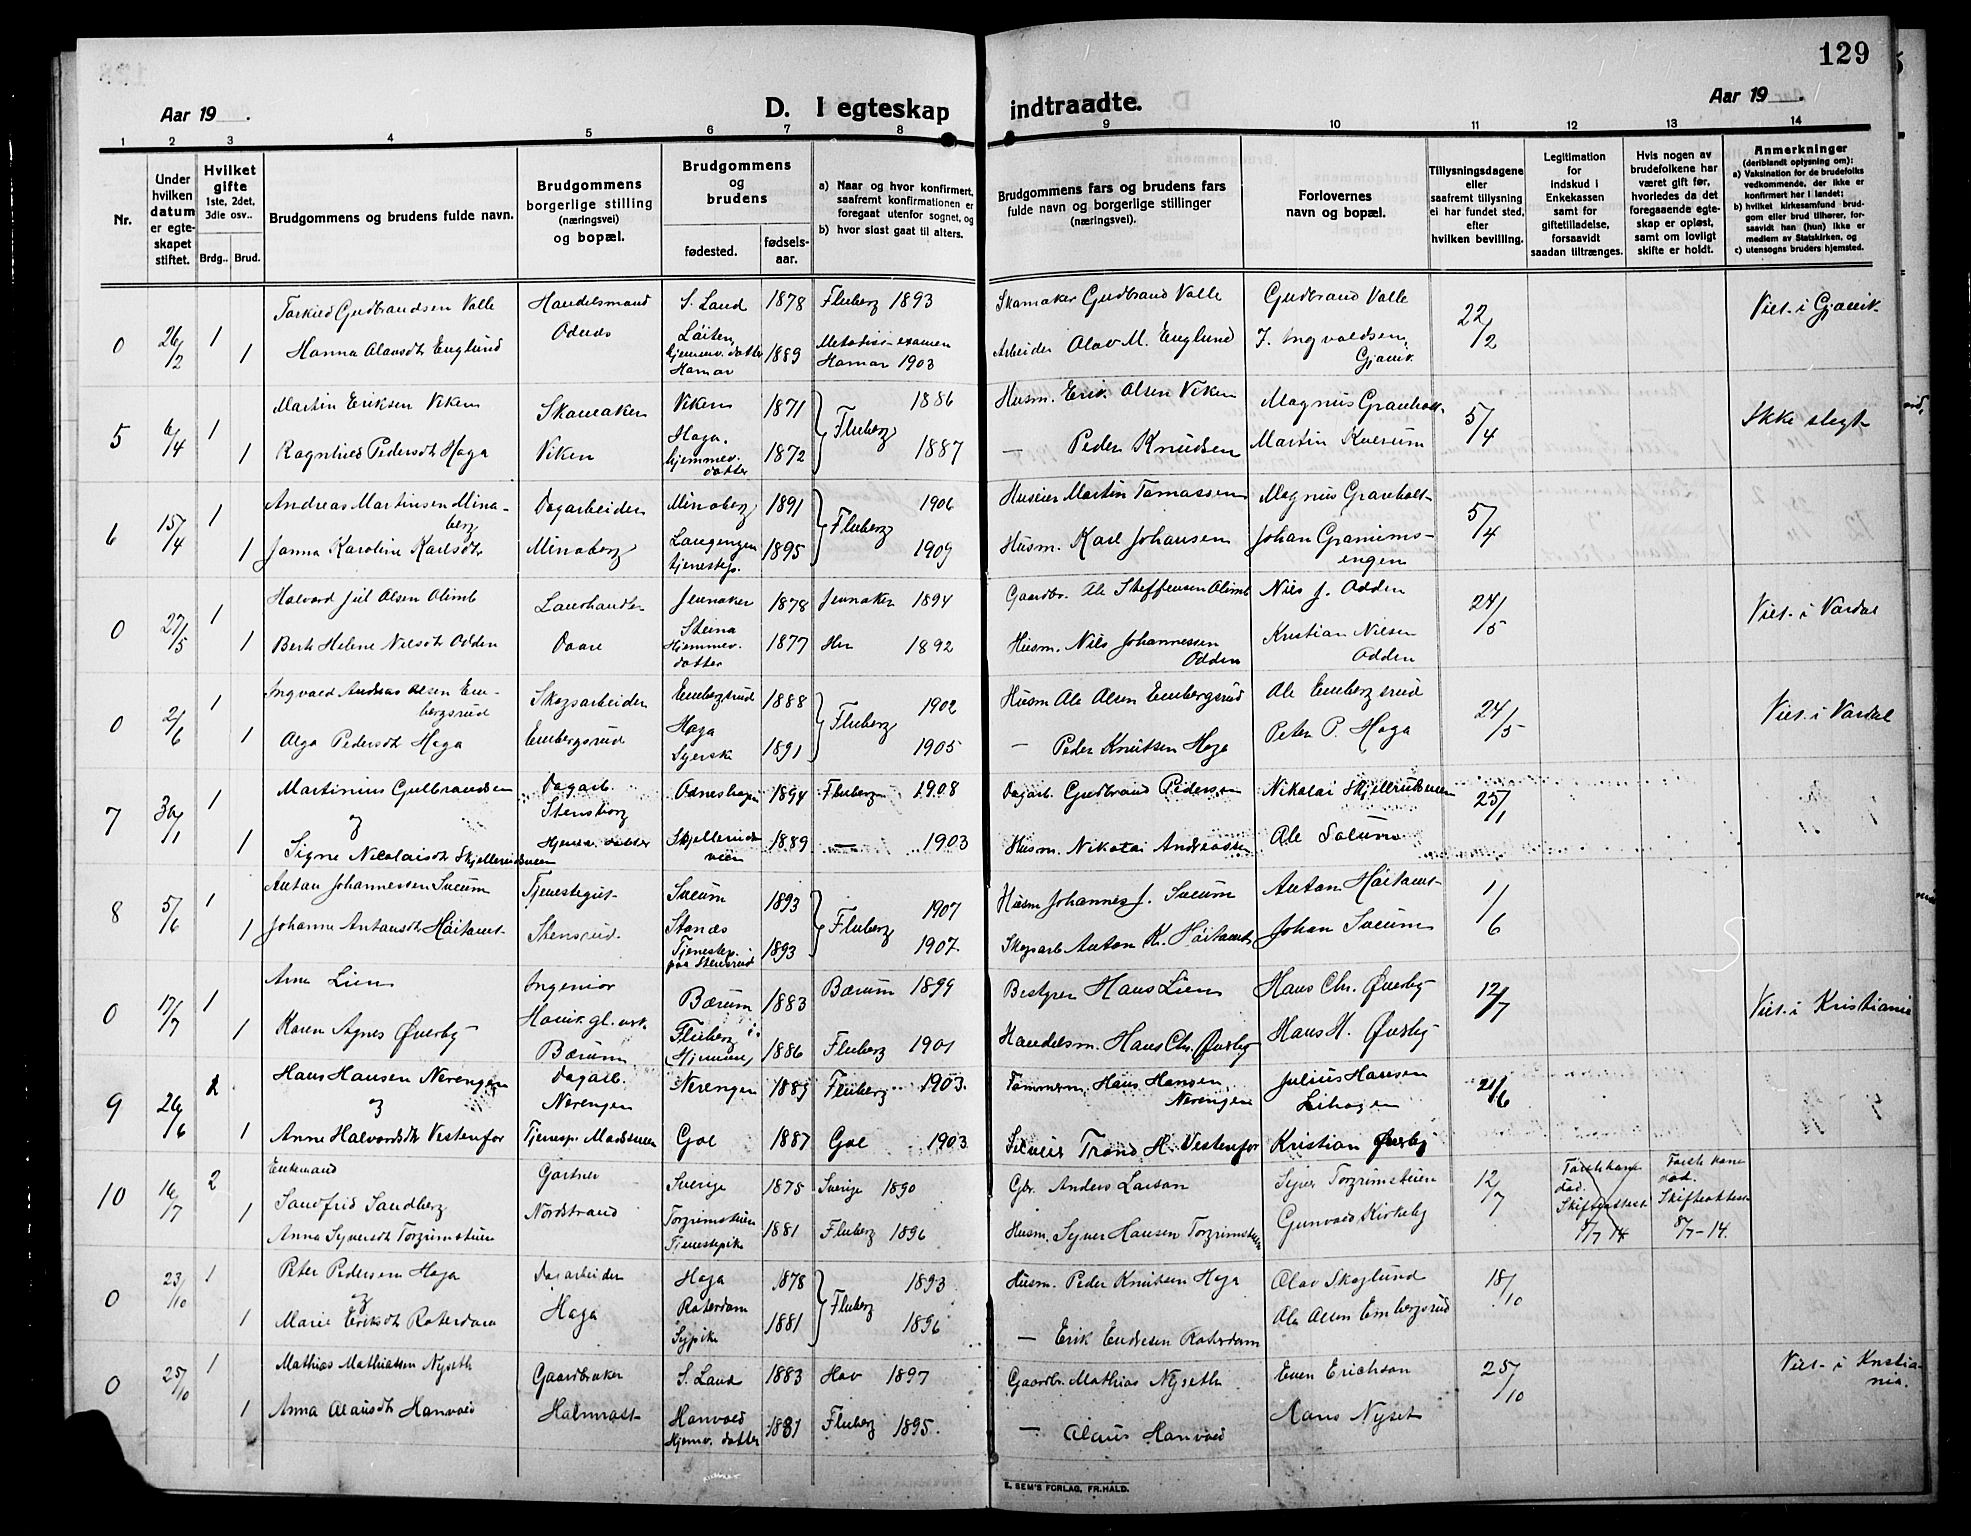 129
Aar 19 .
D. I egteskap
indtraadte.
Aar 19 .
1 2 3 4 5 6 7 8 9 10 11 12 13 14
Nr.
Under hvilken datum er egteskapet stiftet.
Hvilket gifte 1ste, 2det, 3die osv..
Brdg.. Brud.
Brudgommens og brudens fulde navn.
Brudgommens borgerlige stilling (næringsvei) og bopæl.
Brudgommens og brudens
fødested.
fødsels-aar.
a) Naar og hvor konfirmert, saafremt konfirmationen er foregaat utenfor sognet, og
b) hvor sidst gaat til alters.
Brudgommens fars og brudens fars fulde navn og borgerlige stillinger (næringsvei).
Forlovernes navn og bopæl.
Tillysningsdagene eller saafremt tillysning ei har fundet sted, efter hvilken bevilling.
Legitimation for indskud i Enkekassen samt for giftetilladelse, forsaavidt saadan tiltrænges.
Hvis nogen av brudefolkene har været gift før, hvorledes da det foregaaende egteskap er opløst, samt om lovligt skifte er holdt.
Anmerkninger (deriblandt oplysning om): a) Vaksination for de brudefolks vedkommende, der ikke er konfirmert her i landet; b) hvilket kirkesamfund brudgom eller brud tilhører, forsaavidt han (hun) ikke er medlem av Statskirken, og c) utensogns bruders hjemsted.
0 26/2 1 Torkild Gudbrandsen Valle Handelsmand S. Land 1878 Fluberg 1893 Skomaker Gudbrand Valle Gudbrand Valle 22/2 Viet i Gjøvik
1 Hanna Olavsdt Englund Odnes Løiten hjemmev. datter Hamar 1889 Metodist-examen Hamar 1903 Arbeider Olav M. Englund J. Ingvaldsen, Gjøvik
5 6/4 1 Martin Eriksen Viken Skomaker Viken 1871 Fluberg 1886 Husm. Erik Olsen Viken Magnus Granholt 5/4 Ikke slegt
1 Ragnhild Pedersdt Haga Viken Haga. hjemmev. datter 1872 1887 — Peder Knudsen Martin Kverum
6 15/4 1 Andreas Martinsen Minaberg Dagarbeider Minaberg 1891 Fluberg 1906 Huseier Martin Tomassen Magnus Granholt 5/4
1 Janna Karoline Karlsdt Minaberg Langengen tjenestep. 1895 1909 Husm. Karl Johansen Johan Granumsengen
0 27/5 1 Halvord Juel Olsen Olimb Landhandler Jevnaker 1878 Jevnaker 1894 Gaardbr. Ole Steffensen Olimb Nils J. Odden 24/5 Viet i Vardal
1 Berte Helene Nilsdt Odden Steina Hjemmev. datter 1877 Her 1892 Husm. Nils Johannessen Odden Kristian Nilsen Odden
0 2/6 1 Ingvald Andreas Olsen Embergsrud Skogsarbeider Embergsrud 1888 Fluberg 1902 Husm Ole Olsen Embergsrud Ole Embergsrud 24/5 Viet i Vardal
1 Olga Pedersdt Haga Embergsrud Haga Syerske 1891 1905 — Peder Knutsen Haga Peter P. Haga
7 30/1 1 Martinius Gulbrandsen Dagarb. Stensborg Odneshagen 1894 Fluberg 1908 Dagarb. Gudbrand Pedersen Nikolai Skjellerudsveen 25/1
og
1 Signe Nicolaisdt Skjellerudsveen Hjemv. datter 1889 — 1903 Husm. Nikolai Andreassen Ole Solum
8 5/6 1 Anton Johannessen Sveum Tjenestegut Sveum 1893 Fluberg 1907 Husm Johannes J. Sveum Anton Høitomt 1/6
1 Johanne Antonsdt Høitomt Stensrud. Stenes Tjenestep. paa Stensrud 1893 1907. Skogsarb Anton K. Høitomt Johan Sveum
0 17/7 1 Arne Lien Ingeniør Bærum 1883 Bærum 1899 Bestyrer Hans Lien Hans Chr. Øverby 12/7 Viet i Kristiania
1 Karen Agnes Øverby Høvik gl.verk. Bærum Fluberg 1886 Fluberg 1901 Handelsm. Hans Chr. Øverby Hans H. Øverby
9 26/6 1 Hans Hansen Nerengen Dagarb. Nerengen Nerengen 1885 Fluberg 1903. Tømmerm. Hans Hansen, Nerengen Julius Hansen Lihagen 21/6
og
1 Anne Halvordsdt Vestenfor Tjenesp. Gol 1887 Gol 1903 Trond H. Vestenfor Kristian Øverby
10 16/7 2 Enkemand Sandfrid Sandberg Gartner Sverige 1875 Sverige 1890 Gbr. Anders Larson Syver Torgrimsteien 12/7 Første kone død. Skifteattest 8/7 14 Første kone død. Skifteattest 8/7-14.
1 Anna Syversdt Torgrimsteien Nordstrand Torgrimsteien Tjenestepike 1881 Fluberg 1896 Husm. Syver Hansen Torgrimsteien Gunvald Kirkeby
0 23/10 1 Peter Pedersen Haga Dagarbeider Haga 1878 Fluberg 1893 Husm. Peder Knutsen Haga Olav Skoglund 18/10
og
1 Marie Eriksdt Roterdam Haga Roterdam Sypike 1881 1896 — Erik Endresen Roterdam Ole Olsen Embergsrud
0 25/10 1 Mathias Mathiassen Nyseth Gaardbruker S. Land 1883 Hov 1897 Gaardbr. Mathias Nyseth Even Erichson 25/10 Viet i Kristiania.
1 Anna Olausdt Hanvold Halmrast Hanvold Hjemv. datter 1881 Fluberg 1895. — Olaus Hanvold Hans Nyset
E. SEM'S FORLAG, FR.HALD.